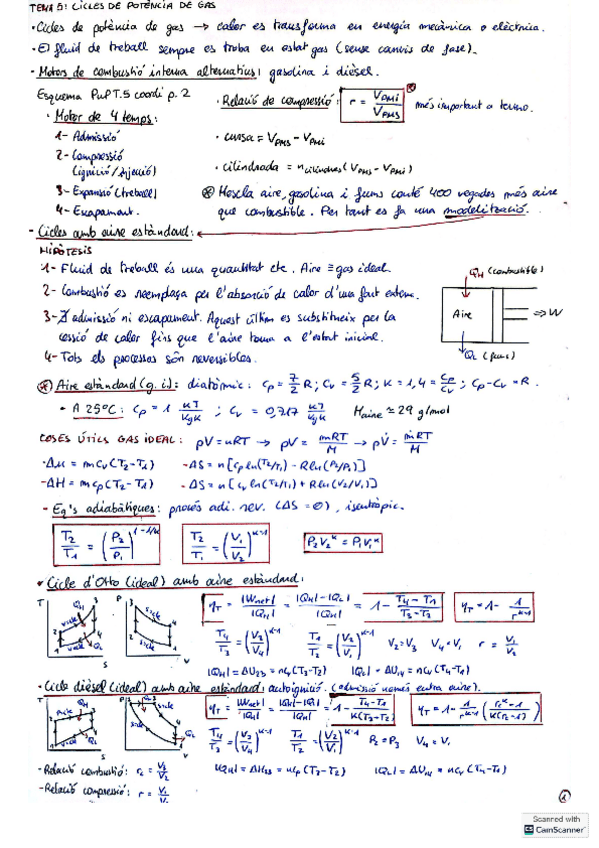 TEMA 5: CICLES DE POTÈNCIA DE GAS
· Cicles de potència de gas → calor es transforma en energia mecànica o elèctrica.
· El fluid de treball sempre es troba en estat gas (sense canvis de fase).
- Motors de combustió interna alternatius: gasolina i dièsel.
Esquema PwPT.5 coordi p. 2
· Relació de compressió: r = V_PMI / V_PMS més important a termo.
· Motor de 4 temps:
1- Admissió
· cursa = V_PMS - V_PMI
2- Compressió
(ignició/injecció)
· cilindrada = n cilindres (V_PMS - V_PMI)
3- Expansió (treball)
4- Escapament.
* Mescla aire, gasolina i fums conté 400 vegades més aire
que combustible. Per tant es fa una modelització.
- Cicles amb aire estàndard:
HIPÒTESIS
1- Fluid de treball és una quantitat cte. Aire ≡ gas ideal.
2- Combustió es reemplaça per l'absorció de calor d'una font externa.
3- ∄ admissió ni escapament. Aquest últim es substitueix per la
cessió de calor fins que l'aire torna a l'estat inicial.
4- Tots els processos són reversibles.
Q_H (combustible)
Aire
⇒ W
Q_L (fums)
* Aire estàndard (g.i.): diatòmic: Cp = 7/2 R; Cv = 5/2 R; K = 1,4 = Cp/Cv; Cp - Cv = R.
· A 25ºC: Cp = 1 KJ/KgK; Cv = 0,717 KJ/KgK M aire ≈ 29 g/mol
COSES ÚTILS GAS IDEAL: pV = nRT → pV = mRT/M → pV̇ = ṁRT/M
- Δu = mCv(T2-T1) - ΔS = n[Cp ln(T2/T1) - R ln(P2/P1)]
- ΔH = mCp(T2-T1) - ΔS = n[Cv ln(T2/T1) + R ln(V2/V1)]
- Eq's adiabàtiques: procés adi. rev. (ΔS = 0), isentròpic.
T2/T1 = (P2/P1)^1-1/K T2/T1 = (V1/V2)^K-1 P2V2^K = P1V1^K
· Cicle d'Otto (ideal) amb aire estàndard:
T s P v
ηT = |Wnet|/|QH| = |QH|-|QL|/|QH| = 1 - T4-T1/T3-T2 ηT = 1 - 1/r^K-1
T4/T3 = (V3/V4)^K-1 T1/T2 = (V2/V1)^K-1 V2=V3 V4=V1 r = V1/V2
|QH| = ΔU23 = nCv(T3-T2) |QL| = ΔU14 = nCv(T4-T1)
· Cicle dièsel (ideal) amb aire estàndard: autoignició. (admissió només entra aire).
T s P v
ηT = |Wnet|/|QH| = |QH|-|QL|/|QH| = 1 - T4-T1/K(T3-T2) ηT = 1 - 1/r^K-1 (rc^K-1/K(rc-1))
T4/T3 = (V3/V4)^K-1 T1/T2 = (V2/V1)^K-1 P2 = P3 V4 = V1
- Relació combustió: rc = V3/V2
|QH| = ΔH23 = nCp(T3-T2) |QL| = ΔU14 = nCv(T4-T1)
- Relació compressió: r = V1/V2
1
Scanned with
CamScanner